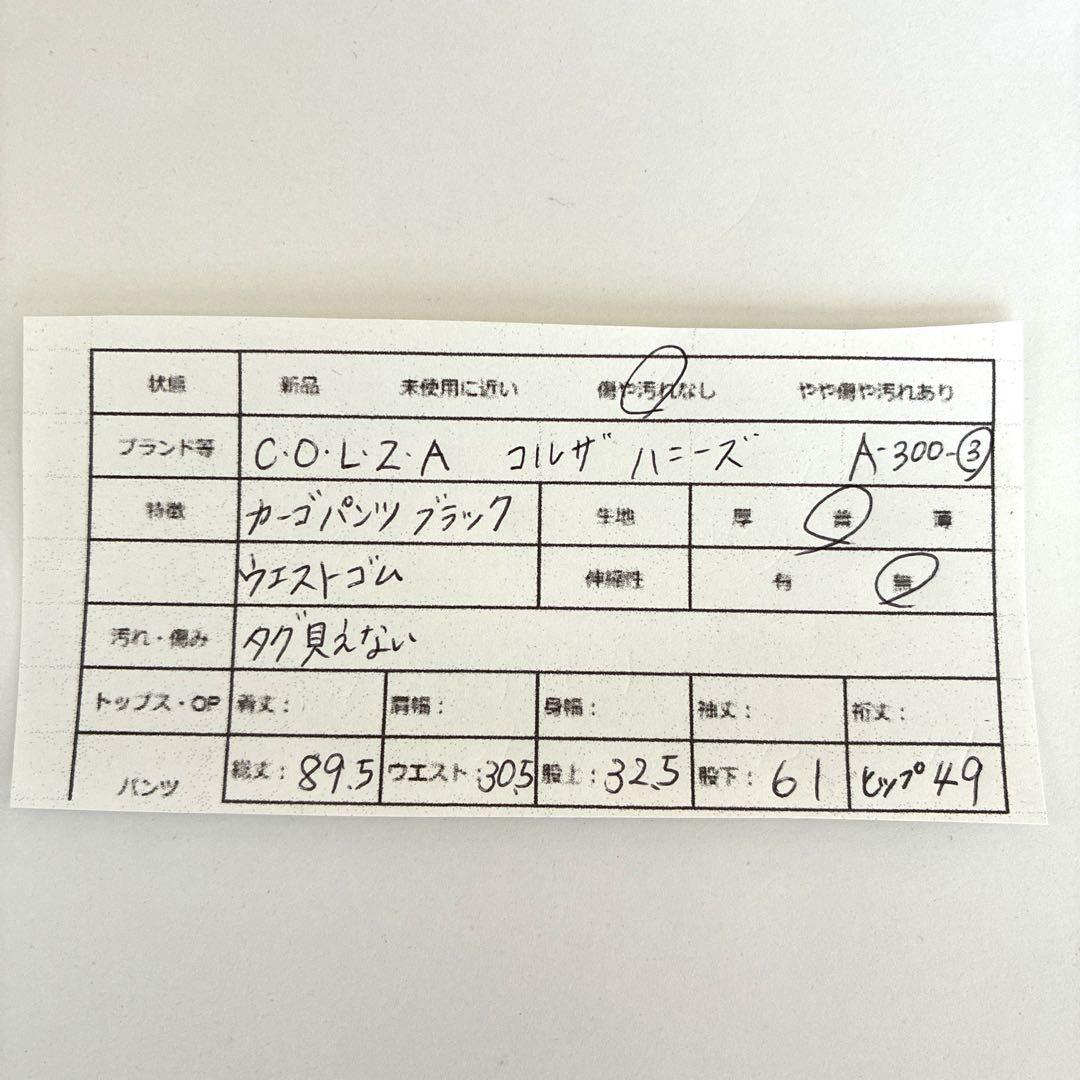 状態 新品 未使用に近い 傷や汚れなし やや傷や汚れあり
ブランド等 C・O・L・Z・A コルザ ハニーズ A-300-③
特徴 カーゴパンツ ブラック 生地 厚 普 薄
ウエストゴム 伸縮性 有 無
汚れ・傷み タグ見えない
トップス・OP 着丈: 肩幅: 身幅: 袖丈: 裄丈:
パンツ 総丈:89.5 ウエスト:30.5 股上:32.5 股下:61 ヒップ49